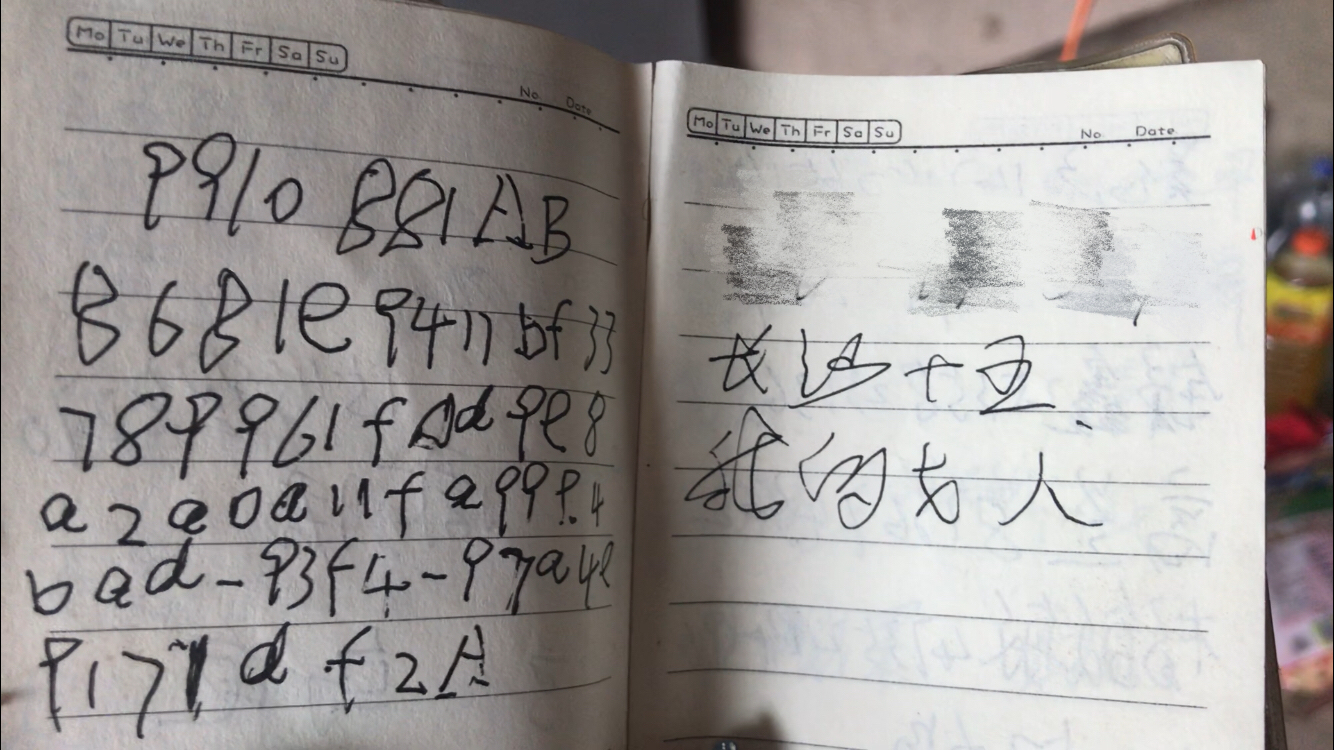 Mo Tu We Th Fr Sa Su
No. Date.
P910 881AB
8681e9411bf33
789961fAd9e8
a2a0a11fa999.4
bad-93f4-97a4e
9171df2A
Mo Tu We Th Fr Sa Su
No. Date.
长沙十五
我的女人